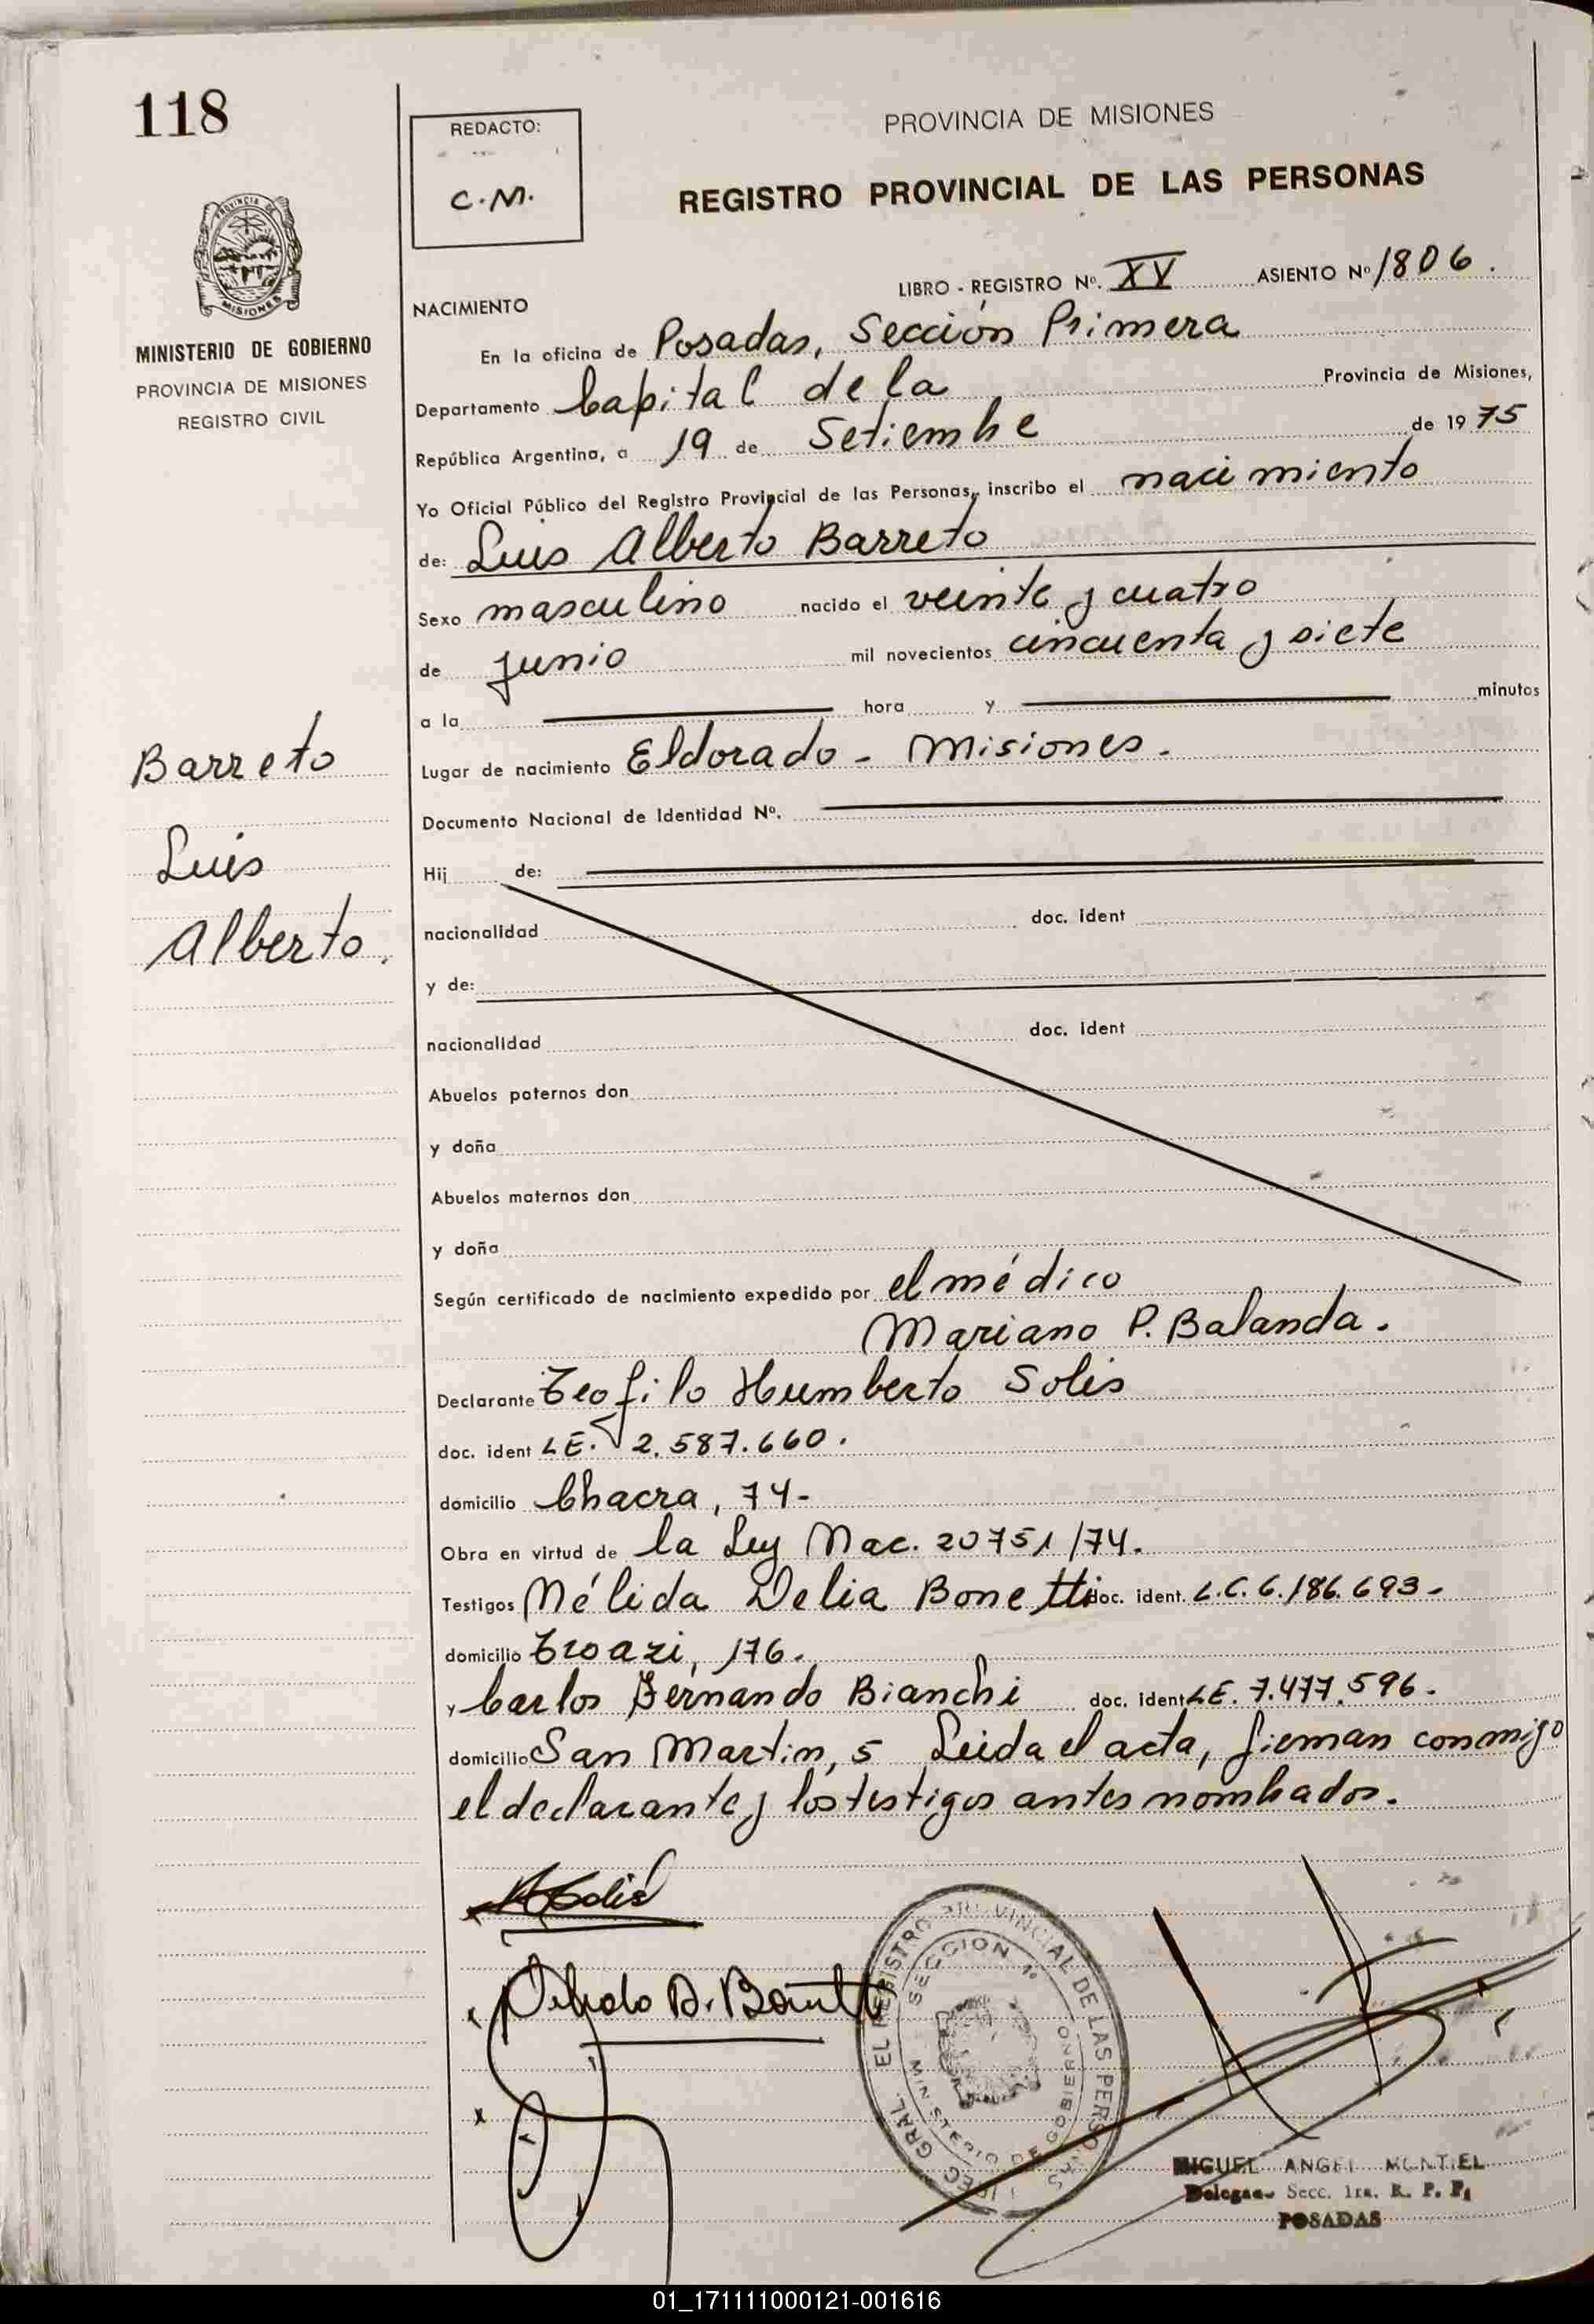 118
REDACTO:
C.M.
PROVINCIA DE MISIONES
REGISTRO PROVINCIAL DE LAS PERSONAS
PROVINCIA DE
MISIONES
MINISTERIO DE GOBIERNO
PROVINCIA DE MISIONES
REGISTRO CIVIL
LIBRO - REGISTRO Nº. XV ASIENTO Nº 1806.
NACIMIENTO
En la oficina de Posadas, Sección Primera
Departamento Capital de la Provincia de Misiones,
República Argentina, a 19 de Setiembre de 1975
Yo Oficial Público del Registro Provincial de las Personas, inscribo el nacimiento
de: Luis Alberto Barreto
Sexo masculino nacido el veinte y cuatro
de junio mil novecientos cincuenta y siete
a la hora y minutos
Lugar de nacimiento Eldorado - Misiones.
Documento Nacional de Identidad Nº.
Barreto
Luis
Alberto.
Hij de:
nacionalidad doc. ident
y de:
nacionalidad doc. ident
Abuelos paternos don
y doña
Abuelos maternos don
y doña
Según certificado de nacimiento expedido por el médico
Mariano P. Balanda.
Declarante Teofilo Humberto Solis
doc. ident LE. 2.587.660.
domicilio Chacra, 74-
Obra en virtud de la Ley Nac. 20751/74.
Testigos Mélida Delia Bonetti doc. ident. L.C. 6.186.693-
domicilio Troazi, 176.
y Carlos Fernando Bianchi doc. ident LE. 7.477.596.
domicilio San Martin, 5 Leida el acta, firman conmigo
el declarante y los testigos antes nombrados.
HSolis
EL REGISTRO PROVINCIAL DE LAS PERSONAS
SECCION 1ª
MINISTERIO DE GOBIERNO
MIGUEL ANGEL MONTIEL
Delegado Secc. 1ra. R. P. P.
POSADAS
01_171111000121-001616